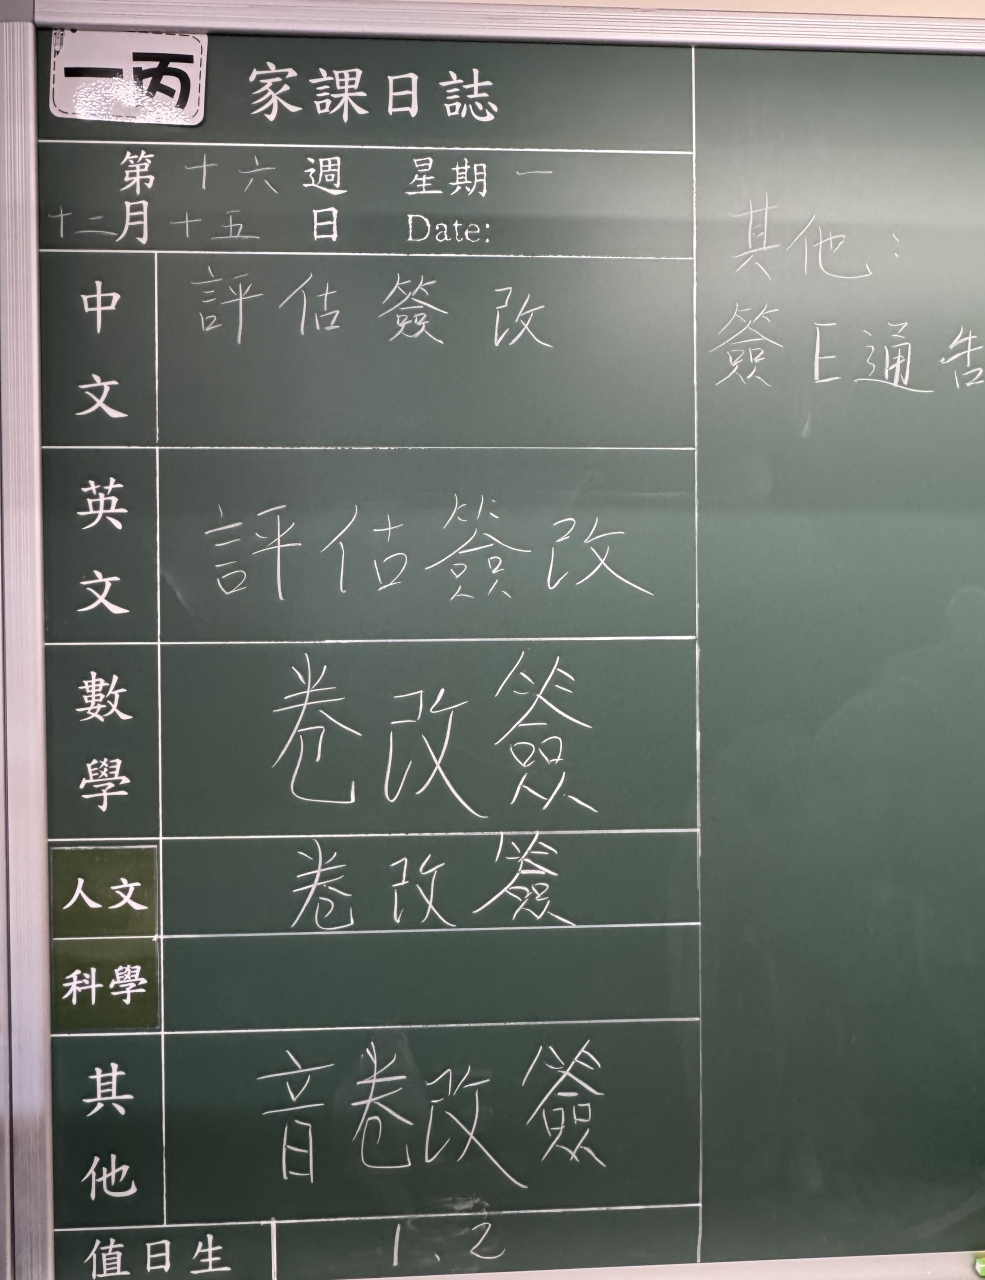 一丙
家課日誌
第十六週 星期一
十二月十五日 Date:
中文 評估簽改
英文 評估簽改
數學 卷改簽
人文 卷改簽
科學
其他 音卷改簽
值日生 1、2
其他：
簽E通告